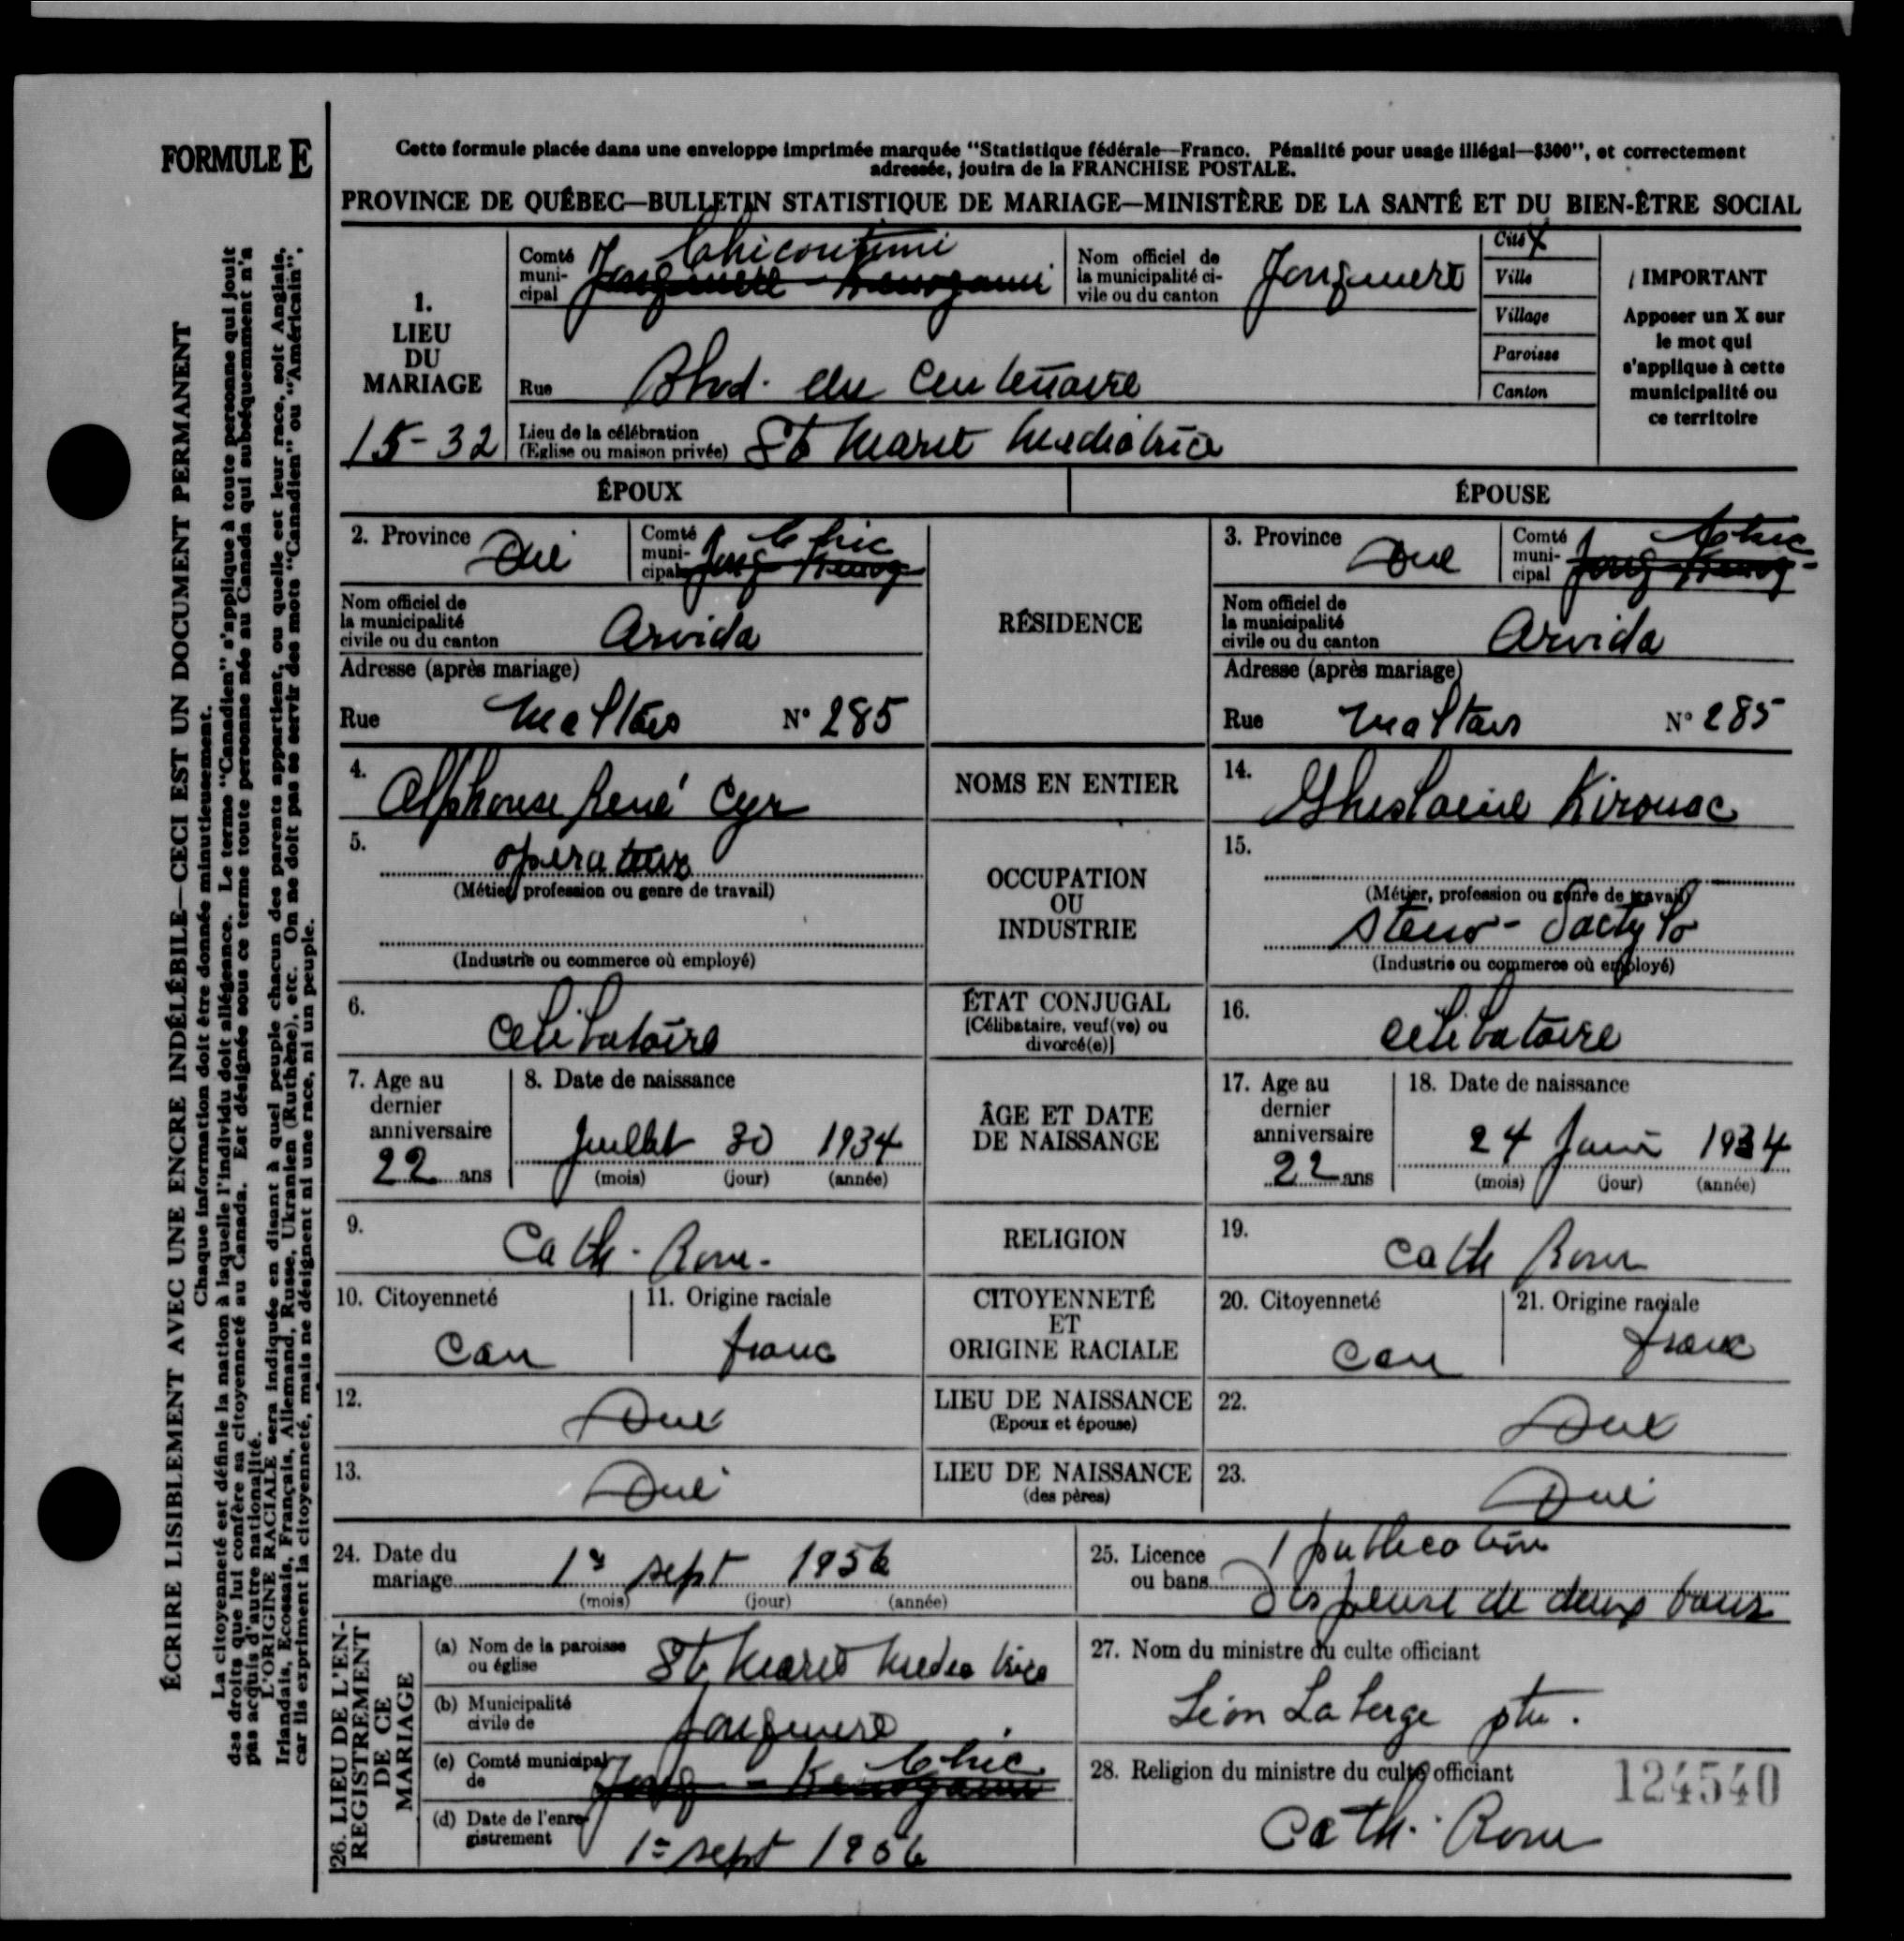 FORMULE E
Cette formule placée dans une enveloppe imprimée marquée "Statistique fédérale—Franco. Pénalité pour usage illégal—$300", et correctement
adressée, jouira de la FRANCHISE POSTALE.
PROVINCE DE QUÉBEC—BULLETIN STATISTIQUE DE MARIAGE—MINISTÈRE DE LA SANTÉ ET DU BIEN-ÊTRE SOCIAL
ÉCRIRE LISIBLEMENT AVEC UNE ENCRE INDÉLÉBILE—CECI EST UN DOCUMENT PERMANENT
Chaque information doit être donnée minutieusement.
La citoyenneté est définie la nation à laquelle l'individu doit allégeance. Le terme "Canadien" s'applique à toute personne qui jouit
des droits que lui confère sa citoyenneté au Canada. Est désignée sous ce terme toute personne née au Canada qui subséquemment n'a
pas acquis d'autre nationalité.
L'ORIGINE RACIALE sera indiquée en disant à quel peuple chacun des parents appartient, ou quelle est leur race, soit Anglais,
Irlandais, Ecossais, Français, Allemand, Russe, Ukranien (Ruthène), etc. On ne doit pas se servir des mots "Canadien" ou "Américain",
car ils expriment la citoyenneté, mais ne désignent ni une race, ni un peuple.
1.
LIEU
DU
MARIAGE
15-32
Comté
muni-
cipal
Chicoutimi
Jonquiere - Kenogami
Nom officiel de
la municipalité ci-
vile ou du canton
Jonquiere
Cité X
Ville
Village
Paroisse
Canton
IMPORTANT
Apposer un X sur
le mot qui
s'applique à cette
municipalité ou
ce territoire
Rue Blvd. du Centenaire
Lieu de la célébration
(Eglise ou maison privée) Ste Marie Mediatrice
ÉPOUX
ÉPOUSE
2. Province Qué
Comté
muni-
cipal
Chic
Jonq - Kenog
RÉSIDENCE
3. Province Que
Comté
muni-
cipal
Chic
Jonq - Kenog-
Nom officiel de
la municipalité
civile ou du canton Arvida
Nom officiel de
la municipalité
civile ou du canton Arvida
Adresse (après mariage)
Rue Maltais N° 285
Adresse (après mariage)
Rue Maltais N° 285
4. Alphonse René Cyr
NOMS EN ENTIER
14. Ghislaine Kirouac
5. operateur
(Métier, profession ou genre de travail)
(Industrie ou commerce où employé)
OCCUPATION
OU
INDUSTRIE
15.
(Métier, profession ou genre de travail)
Steno - dactylo
(Industrie ou commerce où employé)
6. Celibataire
ÉTAT CONJUGAL
[Célibataire, veuf(ve) ou
divorcé(e)]
16. Celibataire
7. Age au
dernier
anniversaire
22 ans
8. Date de naissance
Juillet 30 1934
(mois) (jour) (année)
ÂGE ET DATE
DE NAISSANCE
17. Age au
dernier
anniversaire
22 ans
18. Date de naissance
24 1934
(mois) (jour) (année)
9. Cath. Rom.
RELIGION
19. Cath Rom
10. Citoyenneté
Can
11. Origine raciale
franc
CITOYENNETÉ
ET
ORIGINE RACIALE
20. Citoyenneté
Can
21. Origine raciale
franc
12. Que
LIEU DE NAISSANCE
(Epoux et épouse)
22. Que
13. Qué
LIEU DE NAISSANCE
(des pères)
23. Qué
24. Date du
mariage 1er sept 1956
(mois) (jour) (année)
25. Licence
ou bans
1 publication
dispense de deux bans
26. LIEU DE L'EN-
REGISTREMENT
DE CE
MARIAGE
(a) Nom de la paroisse
ou église Ste Marie Mediatrice
(b) Municipalité
civile de Jonquiere
(c) Comté municipal
de
Chic
Jonq - Kenogami
(d) Date de l'enre-
gistrement 1er sept 1956
27. Nom du ministre du culte officiant
Léon Laberge ptre.
28. Religion du ministre du culte officiant
124540
Cath. Rom